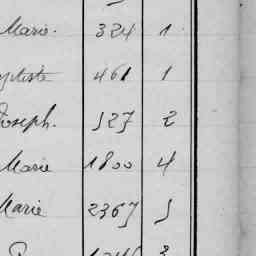 Marie. 324 1
ptiste 461 1
Joseph. 527 2
Marie 1800 4
Marie 2367 5
3